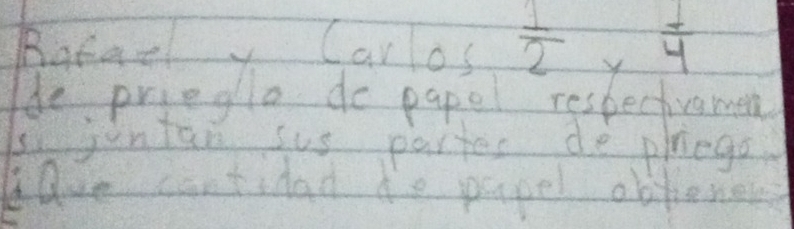 Rafael y Carlos 1/2 y 1/4
de prieglo de papel respectivamen
si juntan sus partes de priego
¿Que cantidad de papel obtienen